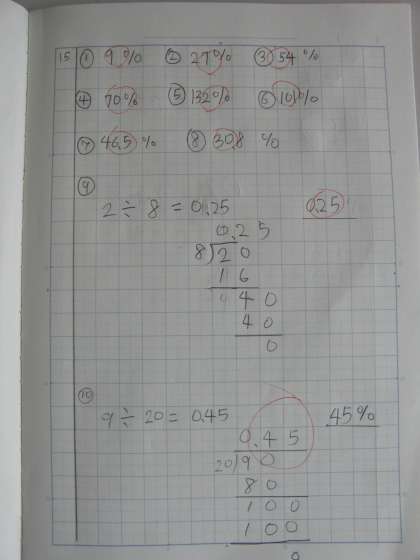 15 ① 9% ② 27% ③ 54%
④ 70% ⑤ 132% ⑥ 101%
⑦ 46.5% ⑧ 30.8%
⑨
2 ÷ 8 = 0.25 0.25
0.25
8)20
16
40
40
0
⑩
9 ÷ 20 = 0.45 45%
0.45
20)90
80
100
100
0